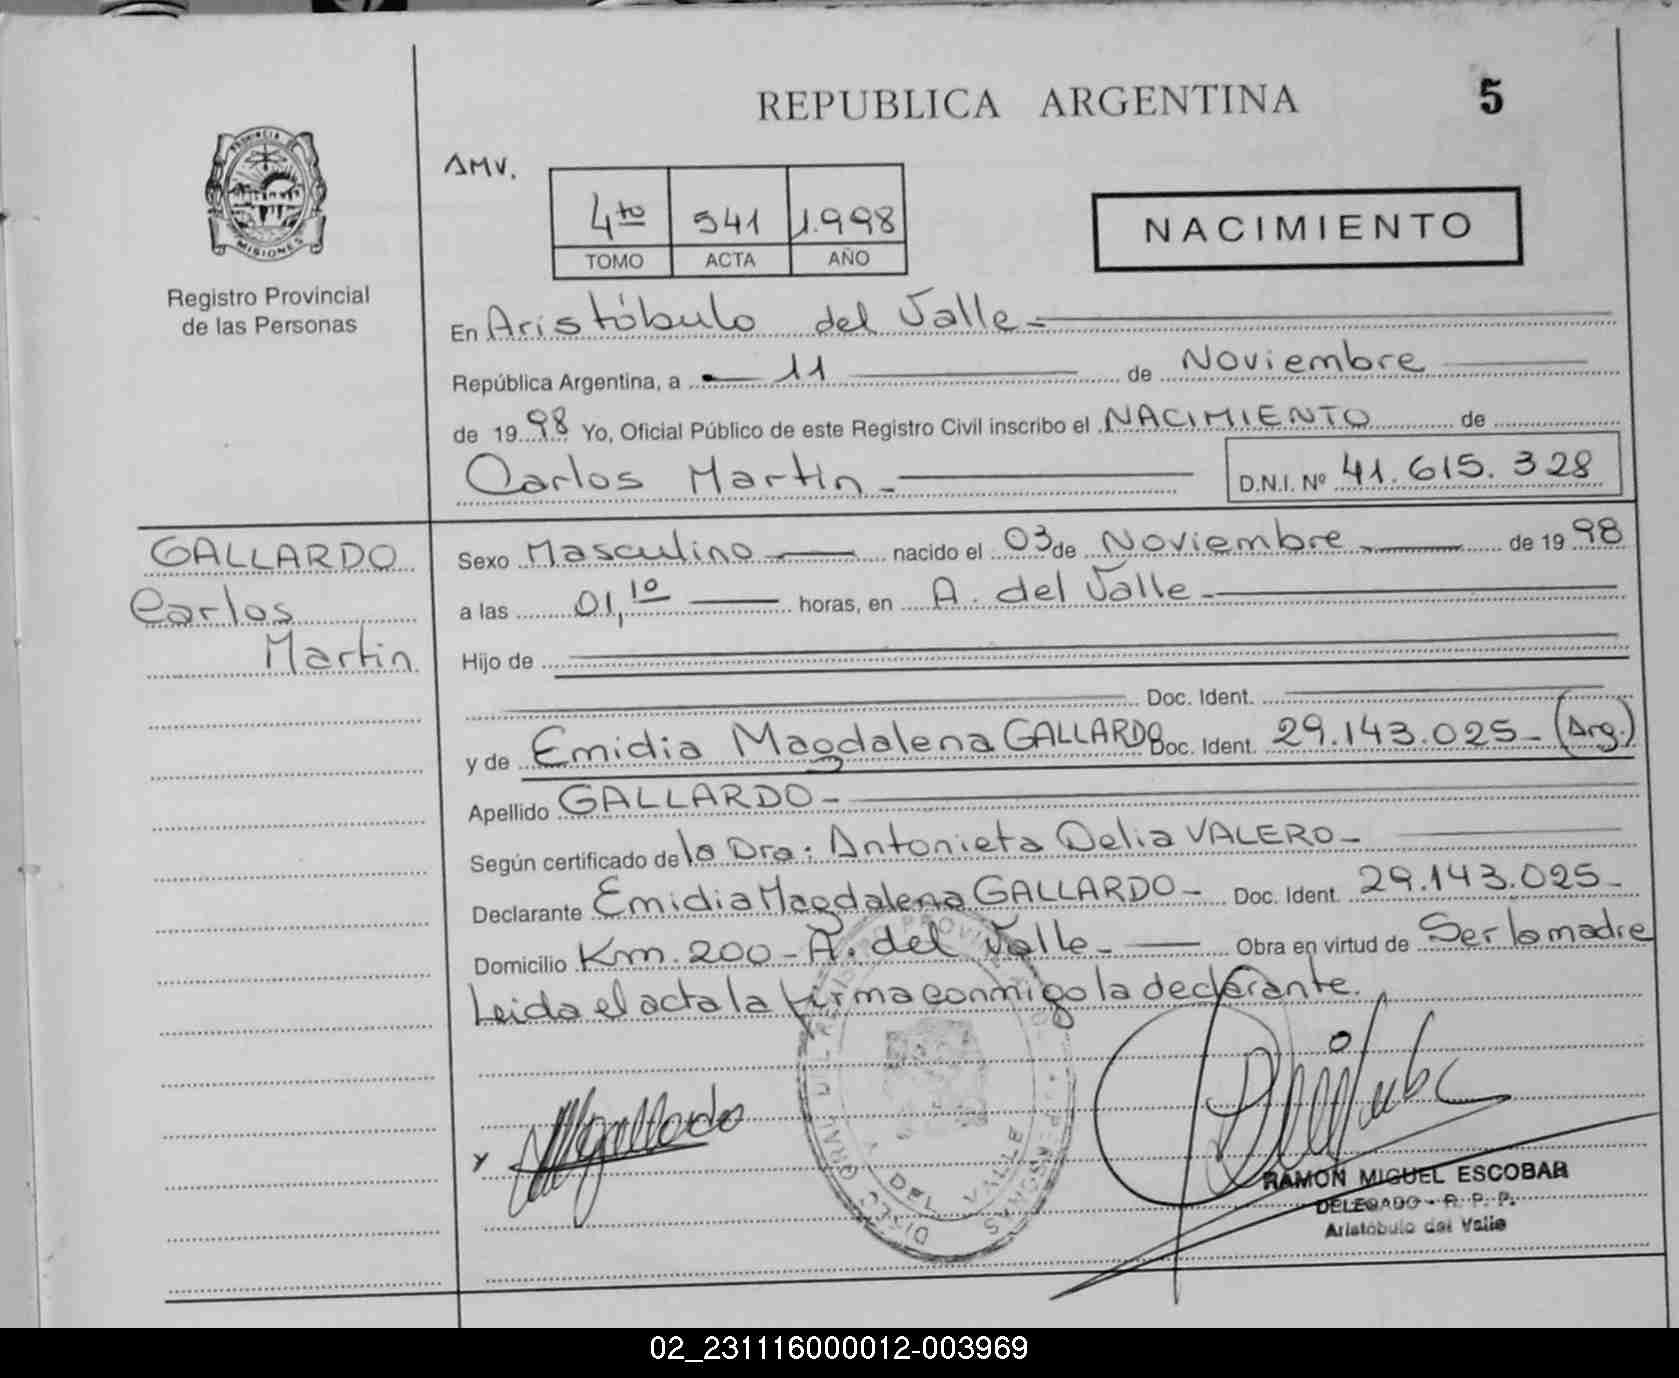 REPUBLICA ARGENTINA
5
PROVINCIA DE
MISIONES
Registro Provincial
de las Personas
AMV.
4to 541 1.998
TOMO ACTA AÑO
NACIMIENTO
En Aristóbulo del Valle-
República Argentina, a 11 de Noviembre
de 1998 Yo, Oficial Público de este Registro Civil inscribo el NACIMIENTO de
Carlos Martin- D.N.I. Nº 41.615.328
GALLARDO
Carlos
Martin
Sexo Masculino nacido el 03 de Noviembre de 1998
a las 01,10 horas, en A. del Valle-
Hijo de
Doc. Ident.
y de Emidia Magdalena GALLARDO Doc. Ident. 29.143.025- (Arg.)
Apellido GALLARDO-
Según certificado de la Dra: Antonieta Delia VALERO-
Declarante Emidia Magdalena GALLARDO- Doc. Ident. 29.143.025-
Domicilio Km. 200 - A. del Valle- Obra en virtud de Ser la madre
Leida el acta la firma conmigo la declarante.
RAMON MIGUEL ESCOBAR
DELEGADO - R. P. P.
Aristóbulo del Valle
02_231116000012-003969